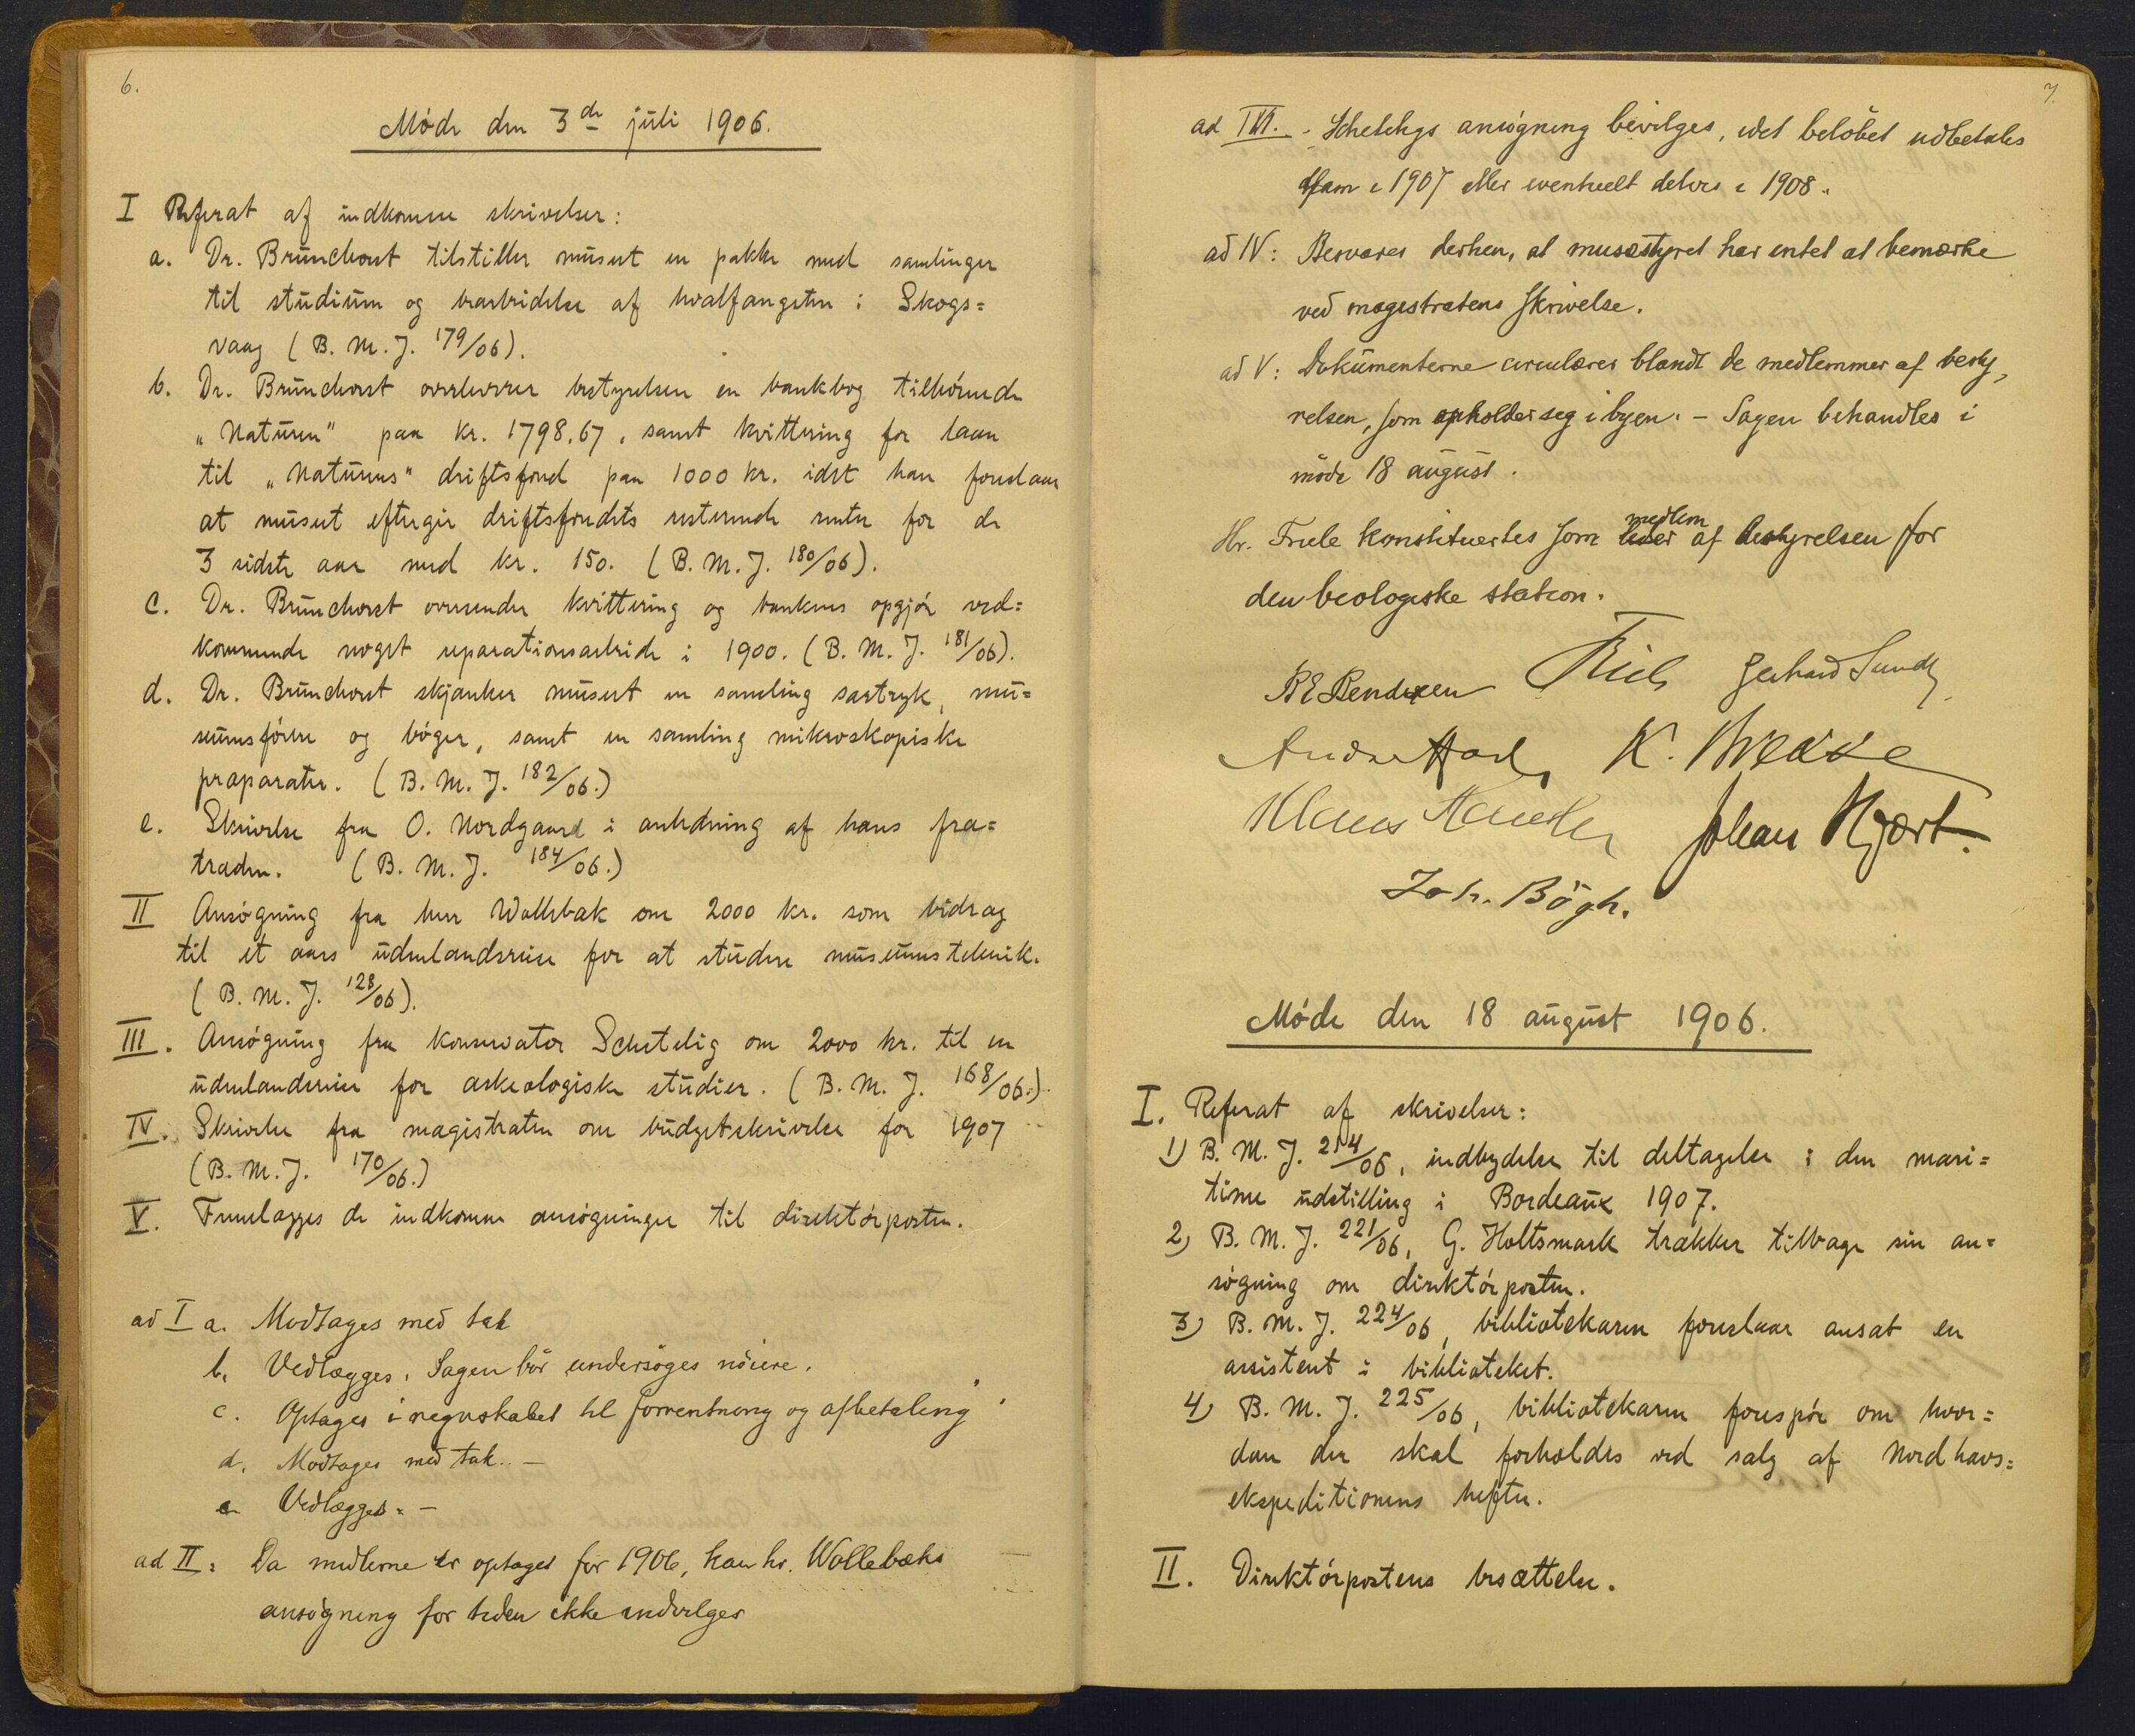 6.
Møde den 3de juli 1906.
I Referat af indkomne skrivelser:
a. Dr. Brunchorst tilstiller museet en pakke med samlinger
til studium og bearbeidelse af hvalfangsten i Skogs=
vaag (B. M. J. 179/06).
b. Dr. Brunchorst overleverer bestyrelsen en bankbog tilhørende
"Naturen" paa kr. 1798.67, samt kvittering for laan
til "Naturens" driftsfond paa 1000 kr. idet han foreslaar
at museet eftergir driftsfondets resterende renter for de
3 sidste aar med kr. 150. (B. M. J. 180/06).
c. Dr. Brunchorst oversender kvittering og bankens opgjør ved=
kommende noget reparationsarbeide i 1900. (B. M. J. 181/06).
d. Dr. Brunchorst skjænker museet en samling særtryk, mu=
seumsførere og bøger, samt en samling mikroskopiske
præparater. (B. M. J. 182/06.)
e. Skrivelse fra O. Nordgaard i anledning af hans fra=
træden. (B. M. J. 184/06.)
II Ansøgning fra herr Wollebæk om 2000 kr. som bidrag
til et aars udenlandsreise for at studere museumsteknik.
(B. M. J. 128/06).
III. Ansøgning fra konservator Schetelig om 2000 kr. til en
udenlandsreise for arkeologiske studier. (B. M. J. 168/06.)
IV. Skrivelse fra magistraten om budgetskrivelse for 1907
(B. M. J. 170/06.)
V. Fremlægges de indkomne ansøgninger til direktørposten.
ad I a. Modtages med tak
b. Vedlægges. Sagen bør undersøges nöiere.
c. Optages i regnskabet til forrentning og afbetaling
d. Modtages med tak. –
e Vedlægges. –
ad II: Da midlerne er optaget for 1906, kan hr. Wollebæks
ansøgning for tiden ikke indvilges
7.
ad III. Scheteligs ansøgning bevilges, idet belöbet udbetales
ham i 1907 eller eventuelt delvis i 1908.
ad IV: Besvares derhen, at museistyret har intet at bemærke
ved magistratens skrivelse.
ad V: Dokumenterne cirkulærer blandt de medlemmer af besty,
relsen, som opholder seg i byen. – Sagen behandles i
möde 18 august.
Hr. Friele konstitueertes som medlem af Bestyrelsen for
den biologiske station.
B E Bendixen Friele Gerhard Sundt
K. Brekke
Klaus Hanssen Johan Hjort.
Joh. Bögh.
Møde den 18 august 1906.
I. Referat af skrivelser:
1) B. M. J. 214/06, indbydelse til deltagelse i den mari=
time udstilling i Bordeaux 1907.
2) B. M. J. 221/06, G. Holtsmark trækker tilbage sin an=
søgning om direktørposten.
3) B. M. J. 224/06, bibliotekaren foreslaar ansat en
assistent i biblioteket.
4) B. M. J. 225/06, bibliotekaren forespør om hvor=
dan der skal forholdes ved salg af Nordhavs=
ekspeditionens hefter.
II. Direktørpostens besættelse.